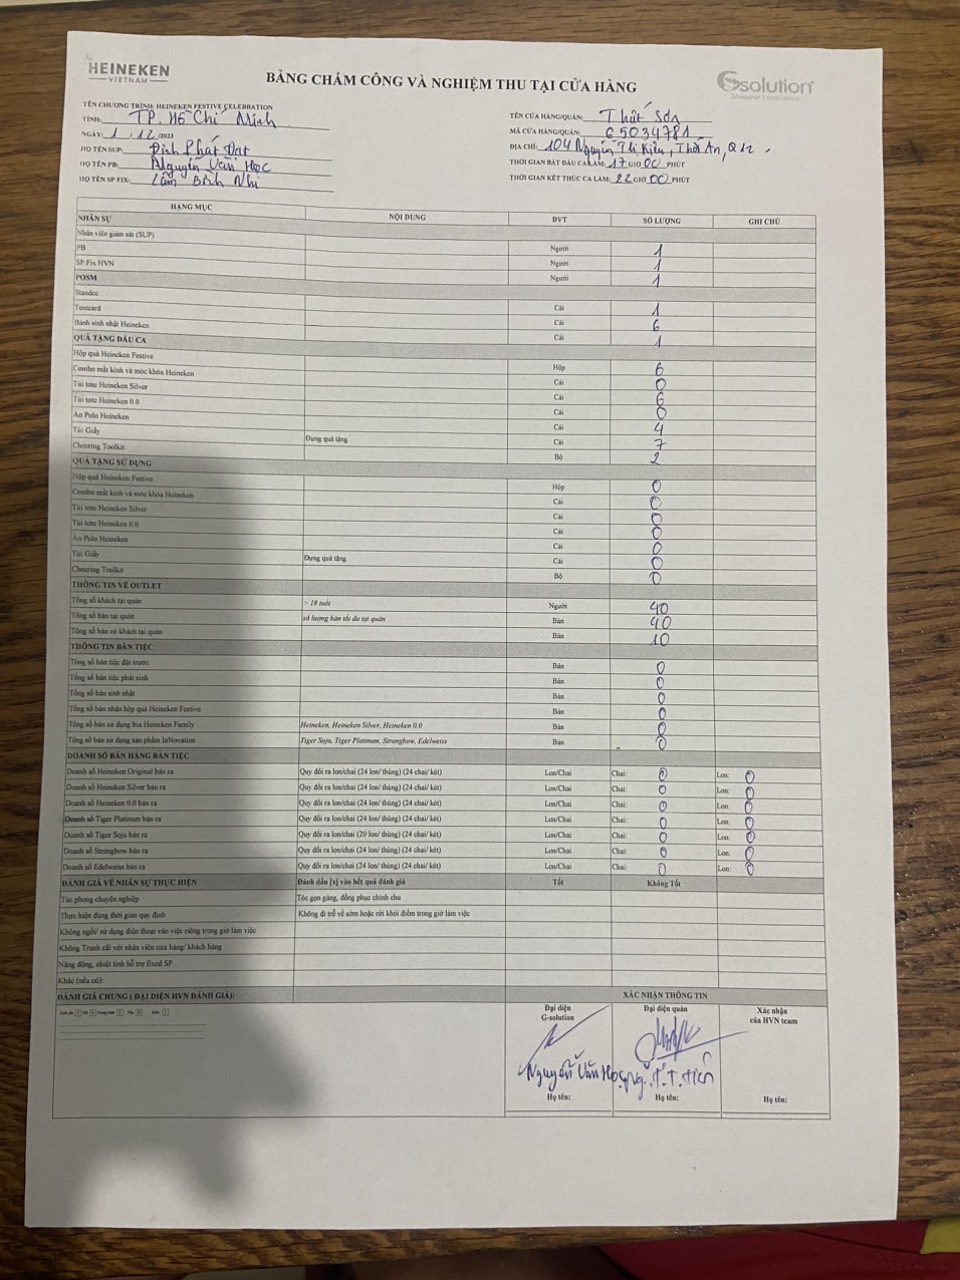 HEINEKEN
VIETNAM
BẢNG CHẤM CÔNG VÀ NGHIỆM THU TẠI CỬA HÀNG
Gsolution
TÊN CHƯƠNG TRÌNH: HEINEKEN FESTIVE CELEBRATION
TỈNH: TP. Hồ Chí Minh
NGÀY: 1 / 12 /2023
HỌ TÊN SUP: Đinh Phát Đạt
HỌ TÊN PB: Nguyễn Văn Học
HỌ TÊN SP FIX: Lâm Bình Nhi
TÊN CỬA HÀNG/QUÁN: Thất Sơn
MÃ CỬA HÀNG/QUÁN: 65034781
ĐỊA CHỈ: 104 Nguyễn Thị Kiêu, Thới An, Q12.
THỜI GIAN BẮT ĐẦU CA LÀM: 17 GIỜ 00 PHÚT
THỜI GIAN KẾT THÚC CA LÀM: 22 GIỜ 00 PHÚT
HẠNG MỤC NỘI DUNG ĐVT SỐ LƯỢNG GHI CHÚ
NHÂN SỰ
Nhân viên giám sát (SUP) Người 1
PB Người 1
SP Fix HVN Người 1
POSM
Standee Cái 1
Tentcard Cái 6
Bánh sinh nhật Heineken Cái 1
QUÀ TẶNG ĐẦU CA
Hộp quà Heineken Festive Hộp 6
Combo mắt kính và móc khóa Heineken Cái 0
Túi tote Heineken Silver Cái 6
Túi tote Heineken 0.0 Cái 0
Áo Polo Heineken Cái 4
Túi Giấy Đựng quà tặng Cái 7
Cheering Toolkit Bộ 2
QUÀ TẶNG SỬ DỤNG
Hộp quà Heineken Festive Hộp 0
Combo mắt kính và móc khóa Heineken Cái 0
Túi tote Heineken Silver Cái 0
Túi tote Heineken 0.0 Cái 0
Áo Polo Heineken Cái 0
Túi Giấy Đựng quà tặng Cái 0
Cheering Toolkit Bộ 0
THÔNG TIN VỀ OUTLET
Tổng số khách tại quán > 18 tuổi Người 40
Tổng số bàn tại quán số lượng bàn tối đa tại quán Bàn 40
Tổng số bàn có khách tại quán Bàn 10
THÔNG TIN BÀN TIỆC
Tổng số bàn tiệc đặt trước Bàn 0
Tổng số bàn tiệc phát sinh Bàn 0
Tổng số bàn sinh nhật Bàn 0
Tổng số bàn nhận hộp quà Heineken Festive Bàn 0
Tổng số bàn sử dụng bia Heineken Family Heineken, Heineken Silver, Heineken 0.0 Bàn 0
Tổng số bàn sử dụng sản phẩm InNovation Tiger Soju, Tiger Platinum, Strongbow, Edelweiss Bàn 0
DOANH SỐ BÁN HÀNG BÀN TIỆC
Doanh số Heineken Original bán ra Quy đổi ra lon/chai (24 lon/ thùng) (24 chai/ két) Lon/Chai Chai: 0 Lon: 0
Doanh số Heineken Silver bán ra Quy đổi ra lon/chai (24 lon/ thùng) (24 chai/ két) Lon/Chai Chai: 0 Lon: 0
Doanh số Heineken 0.0 bán ra Quy đổi ra lon/chai (24 lon/ thùng) (24 chai/ két) Lon/Chai Chai: 0 Lon: 0
Doanh số Tiger Platinum bán ra Quy đổi ra lon/chai (24 lon/ thùng) (24 chai/ két) Lon/Chai Chai: 0 Lon: 0
Doanh số Tiger Soju bán ra Quy đổi ra lon/chai (20 lon/ thùng) (24 chai/ két) Lon/Chai Chai: 0 Lon: 0
Doanh số Strongbow bán ra Quy đổi ra lon/chai (24 lon/ thùng) (24 chai/ két) Lon/Chai Chai: 0 Lon: 0
Doanh số Edelweiss bán ra Quy đổi ra lon/chai (24 lon/ thùng) (24 chai/ két) Lon/Chai Chai: 0 Lon: 0
ĐÁNH GIÁ VỀ NHÂN SỰ THỰC HIỆN Đánh dấu [x] vào kết quả đánh giá Tốt Không Tốt
Tác phong chuyên nghiệp Tóc gọn gàng, đồng phục chỉnh chu
Thực hiện đúng thời gian quy định Không đi trễ về sớm hoặc rời khỏi điểm trong giờ làm việc
Không ngồi/ sử dụng điện thoại vào việc riêng trong giờ làm việc
Không Tranh cãi với nhân viên cửa hàng/ khách hàng
Năng động, nhiệt tình hỗ trợ fixed SP
Khác (nếu có):
ĐÁNH GIÁ CHUNG ( ĐẠI DIỆN HVN ĐÁNH GIÁ): XÁC NHẬN THÔNG TIN
Đại diện G-solution
Đại diện quán
Xác nhận của HVN team
Nguyễn Văn Học
Ng. T. T. Hiền
Họ tên: Họ tên: Họ tên: